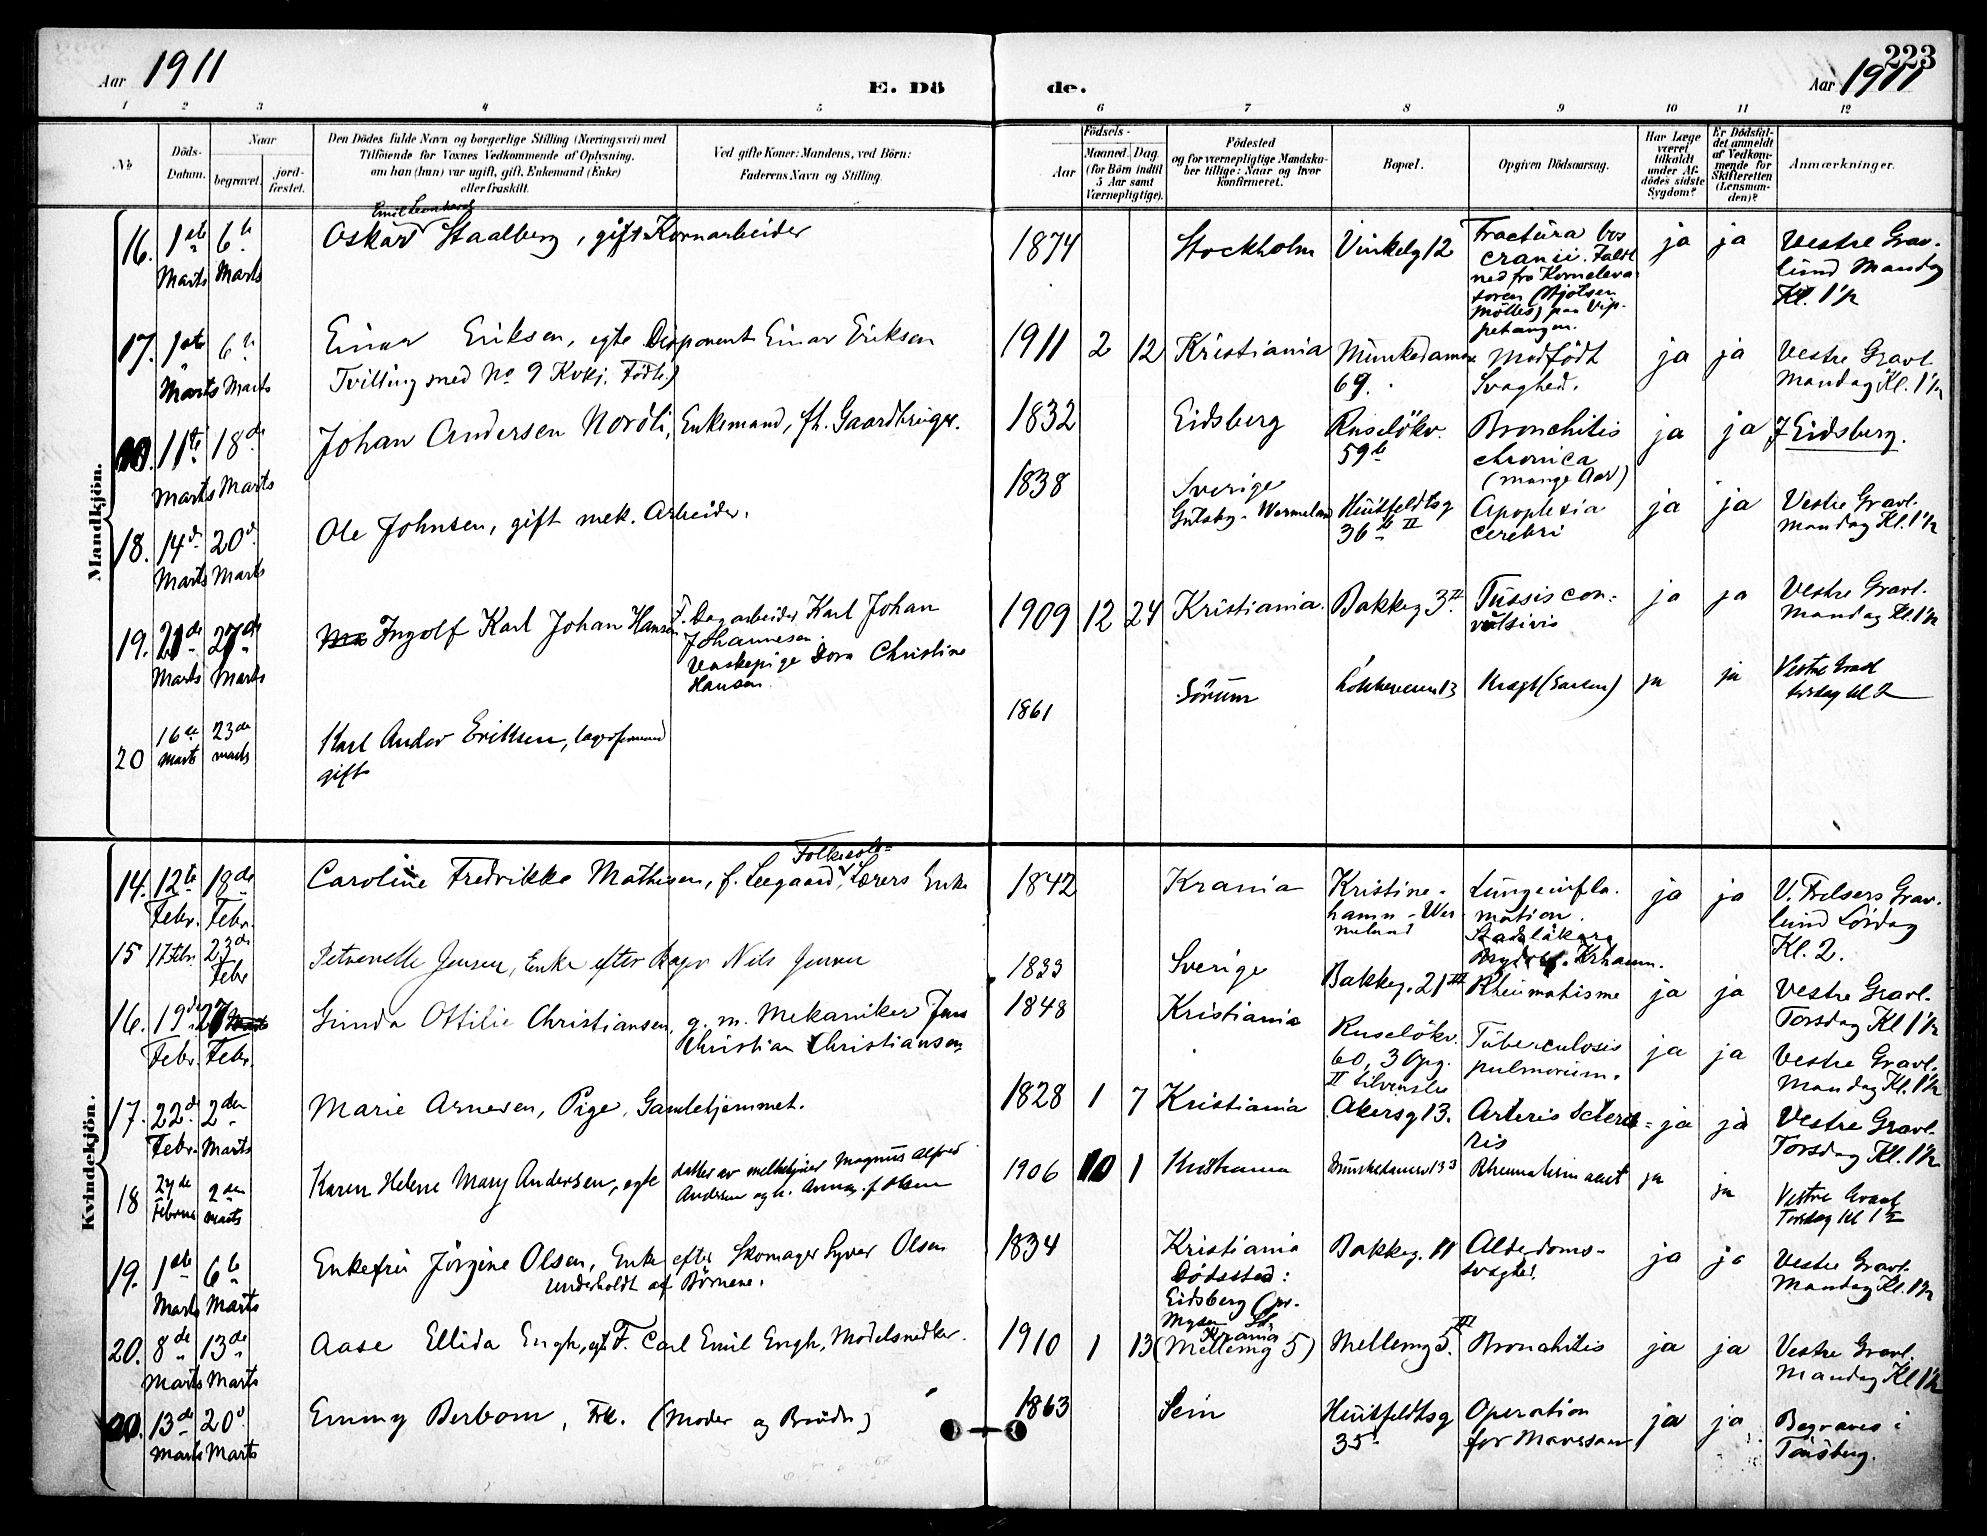 223
Aar 1911
E. Dö
de.
Aar 1911
1 2 3 4 5 6 7 8 9 10 11 12
No
Döds-
Datum.
Naar
begravet.
jord-
fæstet.
Den Dödes fulde Navn og borgerlige Stilling (Næringsvei) med
Tilföiende for Voxnes Vedkommende af Oplysning,
om han (hun) var ugift, gift, Enkemand (Enke)
eller fraskilt.
Ved gifte Koner: Mandens, ved Börn:
Faderens Navn og Stilling.
Födsels-
Aar
Maaned. Dag.
(for Börn indtil
5 Aar samt
Værnepligtige).
Födested
og for værnepligtige Mandska-
ber tillige: Naar og hvor
konfirmeret.
Bopæl.
Opgiven Dödsaarsag.
Har Læge
været
tilkaldt
under Af-
dödes sidste
Sygdom?
Er Dödsfal-
det anmeldt
af Vedkom-
mende for
Skifteretten
(Lensman-
den)?
Anmærkninger.
Mandkjön.
16. 1ste Marts 6te Marts
Emil Leonhard
Oskar Staalberg, gift Kornarbeider
1874 Stockholm Vinkelg 12
Fractura bas
cranii. Faldt
ned fra Korneleva-
toren
paa Vip-
petangen.
ja ja
Vestre Grav-
lund Mandag
Kl. 1½
17. 1ste Marts 6te Marts
Einar Eriksen, egte Disponent Einar Eriksen
Tvilling med No 9 Kvkj. Födte)
1911 2 12 Kristiania
69.
Medfödt
Svaghed.
ja ja
Vestre Gravl.
Mandag Kl. 1½
11te Marts 18de Marts
Johan Andersen Nordli, Enkemand, fh. Gaardbruger.
1832 Eidsberg
Ruselökv.
59b
Bronchitis
chronica
(mange Aar)
ja ja
Eidsberg.
18. 14de Marts 20de Marts
Ole Johnsen, gift mek. Arbeider.
1838
Sverige
Wermeland
Huitfeldtsg
36b II
Apoplexia
cerebri
ja ja
Vestre Gravl.
Mandag Kl. 1½
19. 21de Marts 27de Marts
Ingolf Karl Johan Hansen
F. Dagarbeider Karl Johan
Johannesen.
Vaskepige Dora Christine
Hansen.
1909 12 24 Kristiania. Bakkeg 3 II.
Tussis con-
vulsivis
ja ja
Vestre Gravl.
Mandag Kl. 1½
20 16de Marts 23de Marts
Karl Andor Eriksen, lagerformand
gift
1861 Sörum
Lökkeveien 13
Kræft (Sarcom)
ja ja
Vestre Gravl
torsdag kl 2
Kvindekjön.
14. 12te Febr. 18de Febr.
Folkesko-
Caroline Fredrikke Mathisen, f. Leegaard, Lærers Enke
1842 Krania
Kristine-
hamn - Wer-
meland
Lungeinfla-
mation.
Stadsläkare
Krhamn.
ja ja
V. Frelsers Grav-
lund Lördag
Kl. 2.
15 17 Febr. 23de Febr
Petronelle Jensen, Enke efter Bager Nils Jensen
1833 Sverige
Bakkeg. 21 III
Rheumatisme
ja ja
Vestre Gravl.
Torsdag Kl 1½
16. 19de Febr. 27 Febr.
Gunda Ottilie Christiansen, g. m. Mekaniker Jens
Christian Christiansen
1848 Kristiania
Ruselökv.
60, 3 Opg.
II tilvenstre
Tuberculosis
pulmonum.
ja ja
Vestre Gravl.
Mandag Kl. 1½
17. 22de Febr. 2den Marts
Marie Arnesen, Pige, Gamlehjemmet.
1828 1 7 Kristiania
Akersg 13.
ja ja
Vestre Gravl.
Torsdag Kl. 1½
18 24de Februar 2den Marts
Karen Helene Mary Andersen, egte
datter av melkekjörer Magnus Alfred
Andersen og h. Anna f. Olsen
1906 10 1 Kristiania
ja ja
Vestre Gravl
Torsdag Kl 1½
19. 1ste Marts 6te Marts
Enkefru Jörgine Olsen, Enke efter Skomager Syver Olsen
underholdt af Börnene.
1834
Kristiania
Dödssted:
Eidsberg (pr.
Mysen St.
Bakkeg. 11
Alderdoms-
svaghed.
ja ja
Vestre Gravl.
Mandag Kl. 1½
20. 8de Marts 13de Marts
Aase Ellida Engh, egte F. Carl Emil Engh, Modelsnedker.
1910 1 13
Krania
(Mellemg 5)
Mellemg 5. III
Bronchitis
ja ja
Vestre Gravl.
Mandag Kl 1½
13de Marts 20de Marts
Emmy Berbom, Frk. (Moder og Bröder)
1863 Sem
Huitfeldtsg
35
Operation
for Mavesaar
ja ja
Begraves i
Tönsberg.